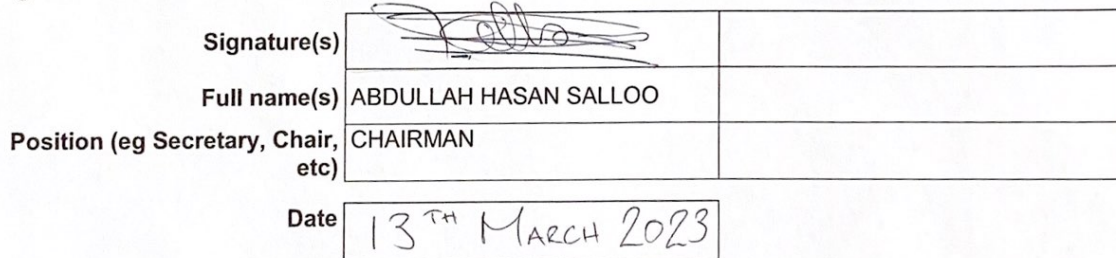 Signature(s)
Full name(s) ABDULLAH HASAN SALLOO
Position (eg Secretary, Chair, CHAIRMAN
etc)
Date 13TH MARCH 2023